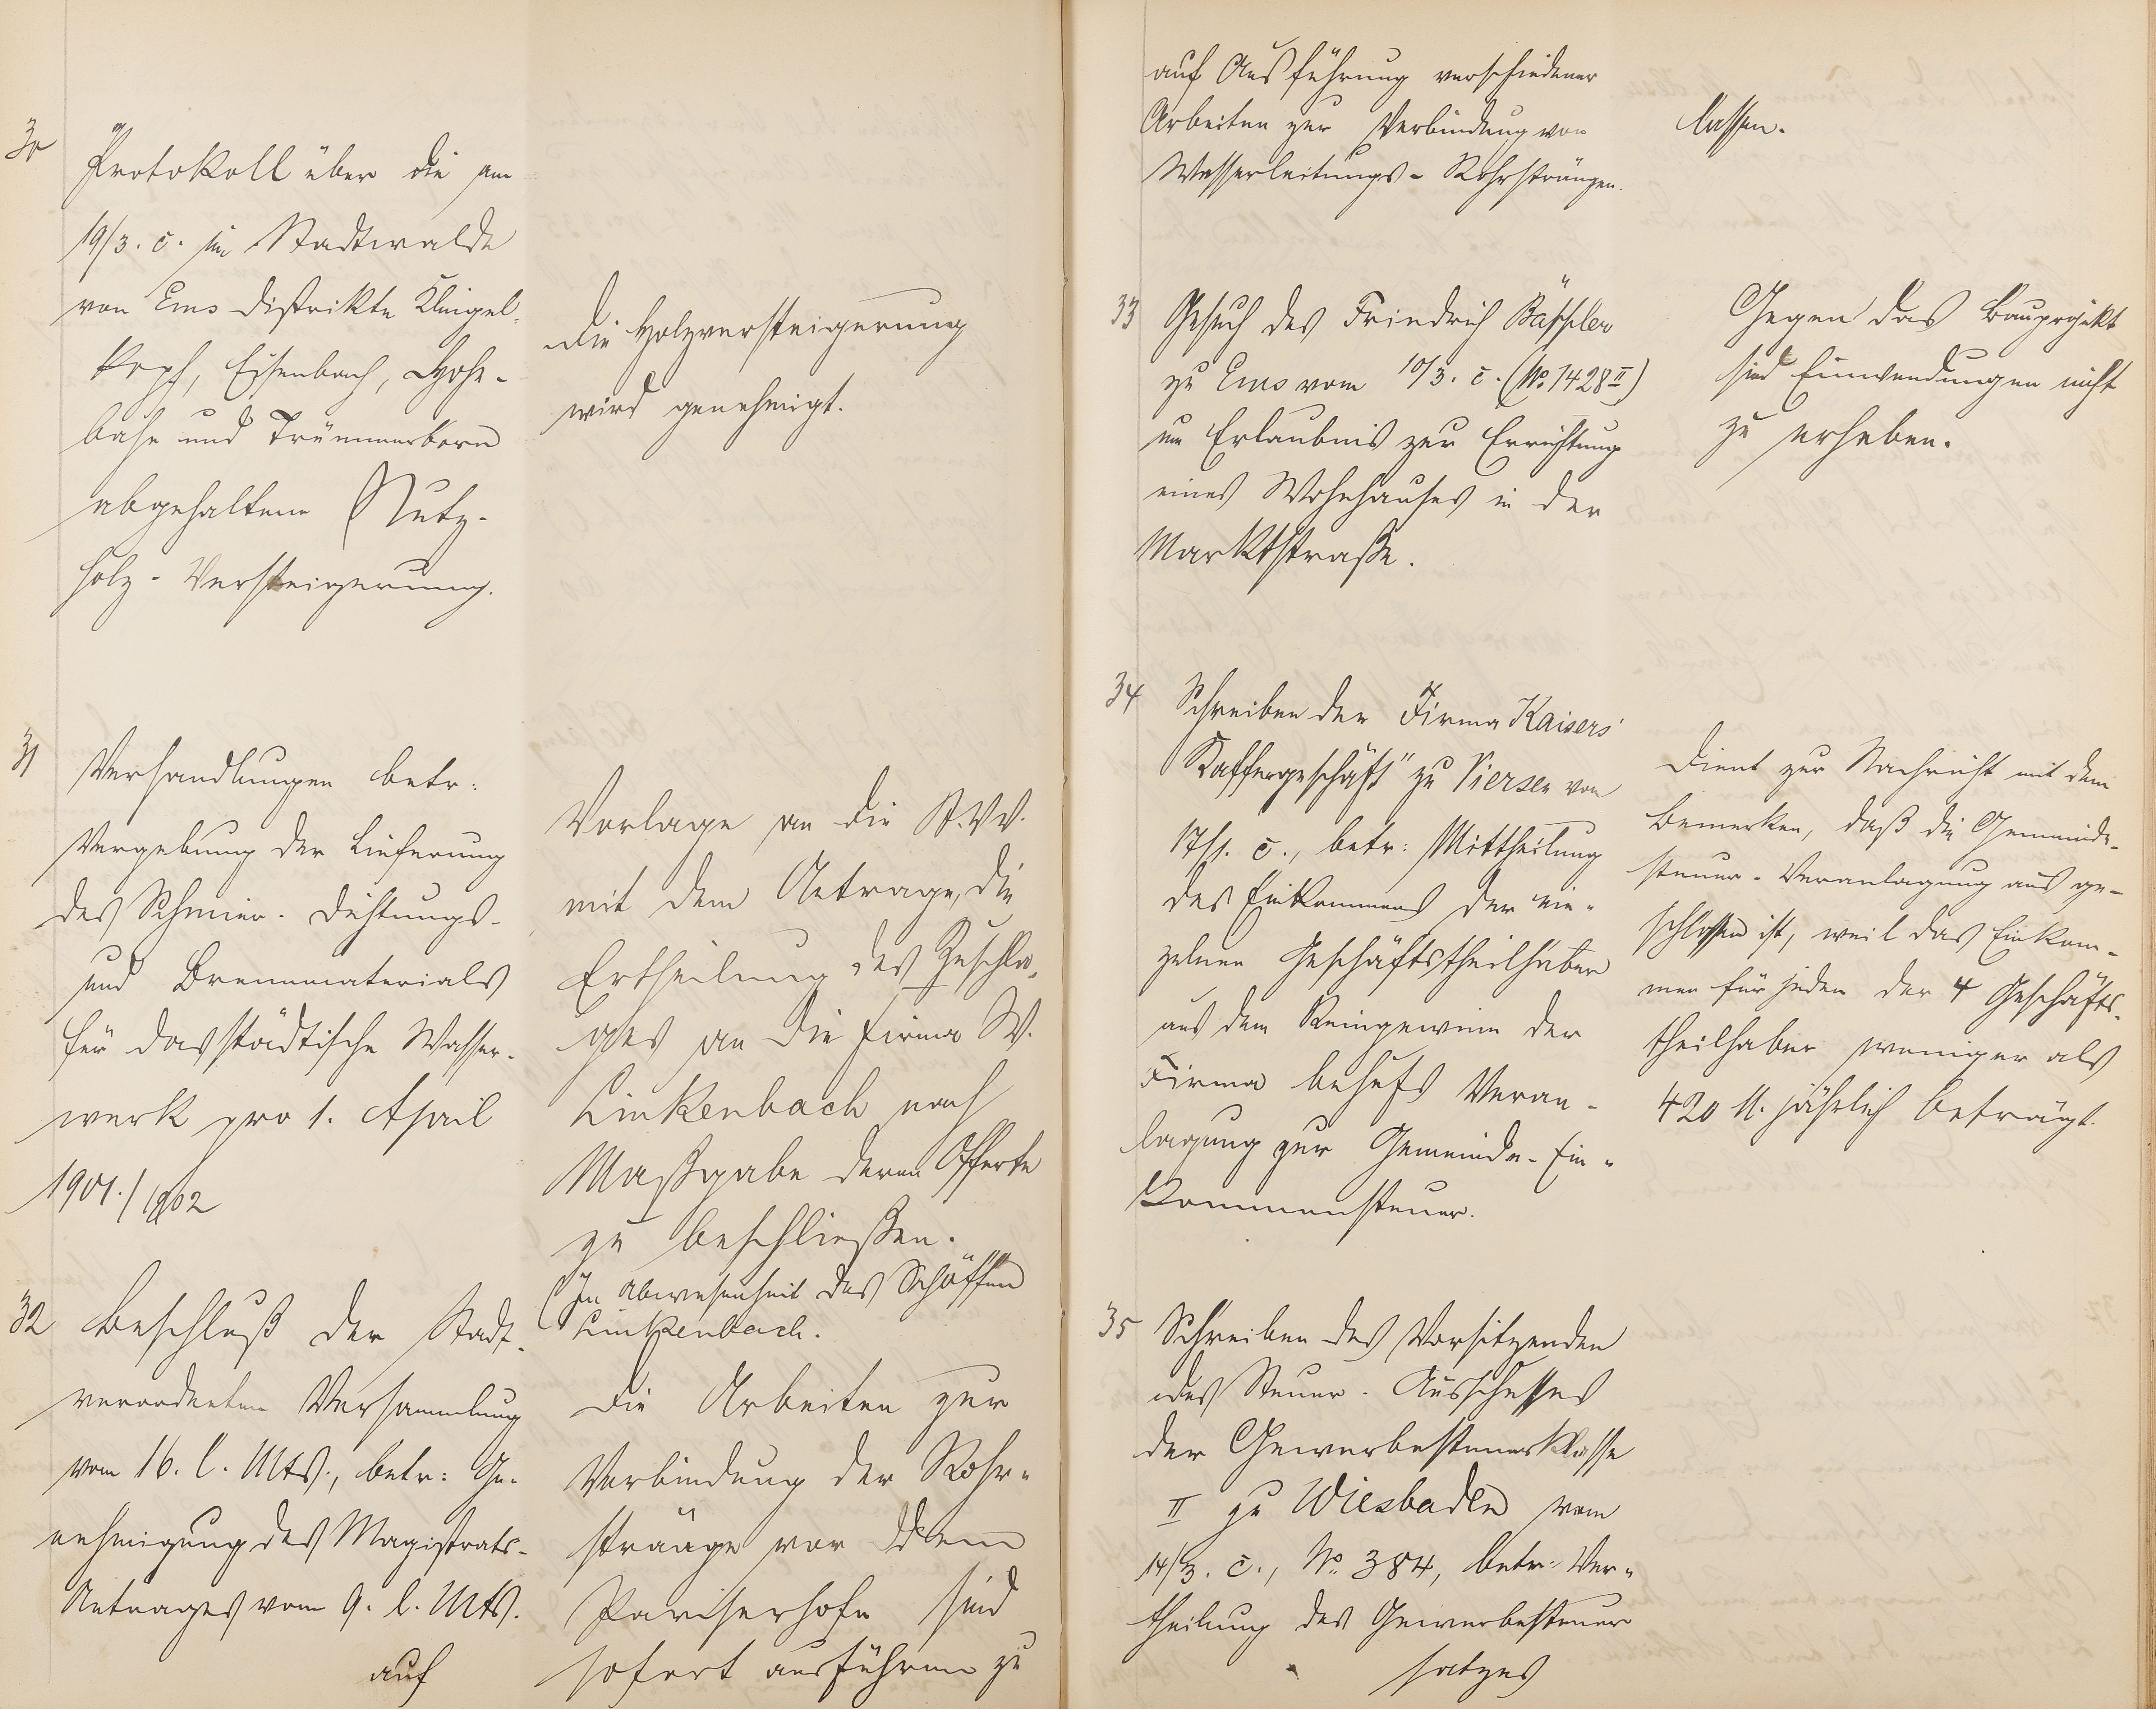 30
Protokoll über die am
19/3. c. im Stadtwalde
von Ems Distrikte Klingel-
kopf, Eisenbach, Hohe-
buhr und Trümmerborn
abgehaltene Nutz-
holz-Versteigerung.
Die Holzversteigerung
wird genehmigt.
31
Verhandlungen betr:
Vergebung der Lieferung
des Schmier- Dichtungs-
und Brennmaterials
für das städtische Wasser-
werk pro 1. April
1901./1902
Vorlage an die St.VV.
mit dem Antrage, die
Ertheilung des Zuschla-
ges an die Firma W.
Linkenbach nach
Maßgabe deren Offerte
zu beschließen.
(In Abwesenheit des Schöffen
Linkenbach.
32
Beschluß der Stadt-
verordneten Versammlung
vom 16. l. Mts., betr: Ge-
nehmigung des Magistrats-
Antrages vom 9. l. Mts.
auf
Die Arbeiten zur
Verbindung der Rohr-
stränge vor dem
Pariserhofe sind
sofort ausführen zu
auf Ausführung verschiedener
Arbeiten zur Verbindung von
Wasserleitungs-Rohrsträngen.
lassen.
33
Gesuch des Friedrich Bäppler
zu Ems vom 10/3. c. (No. 1428 II)
um Erlaubnis zur Errichtung
eines Wohnhauses in der
Marktstraße.
Gegen das Bauprojekt
sind Einwendungen nicht
zu erheben.
34
Schreiben der Firma Kaisers'
Kaffeegeschäft" zu Viersen vom
17/1. c., betr: Mittheilung
des Einkommens der ein-
zelnen Geschäftstheilhaber
aus dem Reingewinn der
Firma behufs Veran-
lagung zur Gemeinde-Ein-
kommensteuer.
Dient zur Nachricht mit dem
Bemerken, daß die Gemeinde-
steuer-Veranlagung aus ge-
schlossen ist, weil das Einkom-
men für jeden der 4 Geschäfts-
theilhaber weniger als
420 M. jährlich beträgt.
35
Schreiben des Vorsitzenden
des Steuer-Ausschusses
der Gewerbesteuerklasse
II zu Wiesbaden vom
14/3. c., No. 384, betr: Ver-
theilung des Gewerbesteuer
satzes